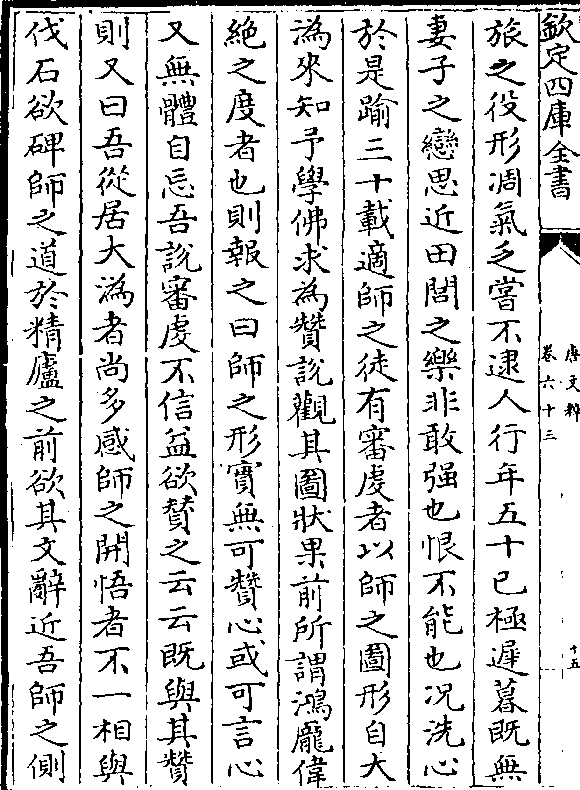 欽定四庫全書
唐文粹
卷六十三
十五
旅之役形凋氣乏嘗不逮人行年五十已極遲暮既無
妻子之戀思近田閭之樂非敢强也恨不能也况洗心
於是踰三十載適師之徒有審虔者以師之圖形自大
溈來知予學佛求為贊說觀其圖狀果前所謂鴻龐偉
絶之度者也則報之曰師之形實無可贊心或可言心
又無體自忘吾説審虔不信益欲賛之云云既與其贊
則又曰吾從居大溈者尚多感師之開悟者不一相與
伐石欲碑師之道於精廬之前欲其文辭近吾師之側